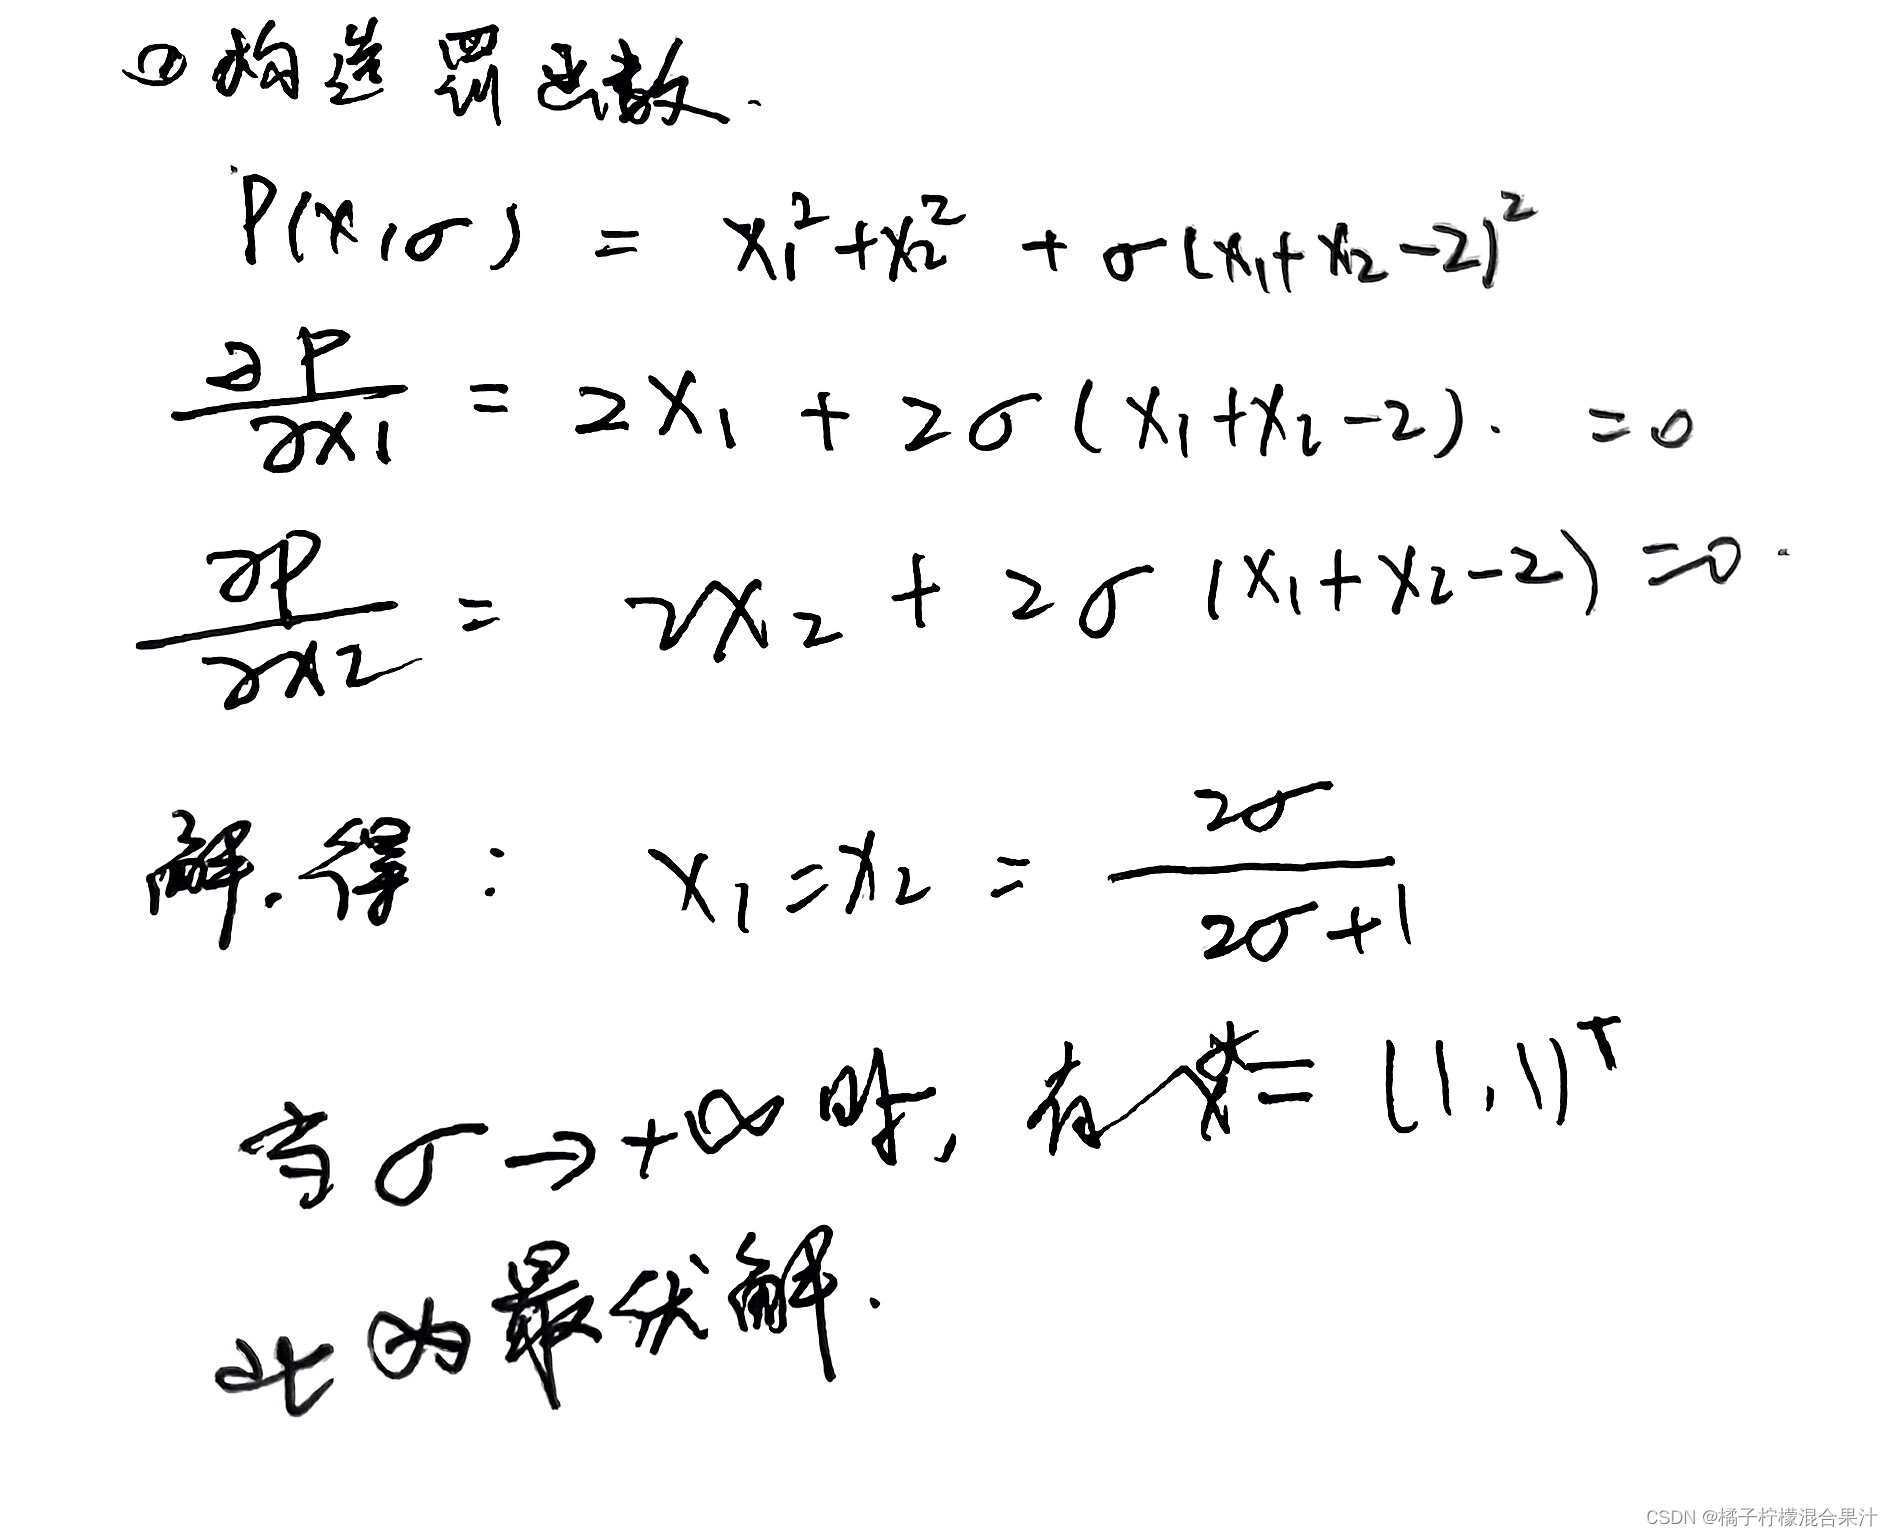 ① 构造罚函数.
P(x,σ) = x₁² + x₂² + σ(x₁+x₂-2)²
∂P/∂x₁ = 2x₁ + 2σ(x₁+x₂-2). =0
∂P/∂x₂ = 2x₂ + 2σ(x₁+x₂-2)=0.
解.得: x₁=x₂ = 2σ/(2σ+1)
当σ→+∞时, 有x*=(1,1)ᵀ
此为最优解.
CSDN @橘子柠檬混合果汁